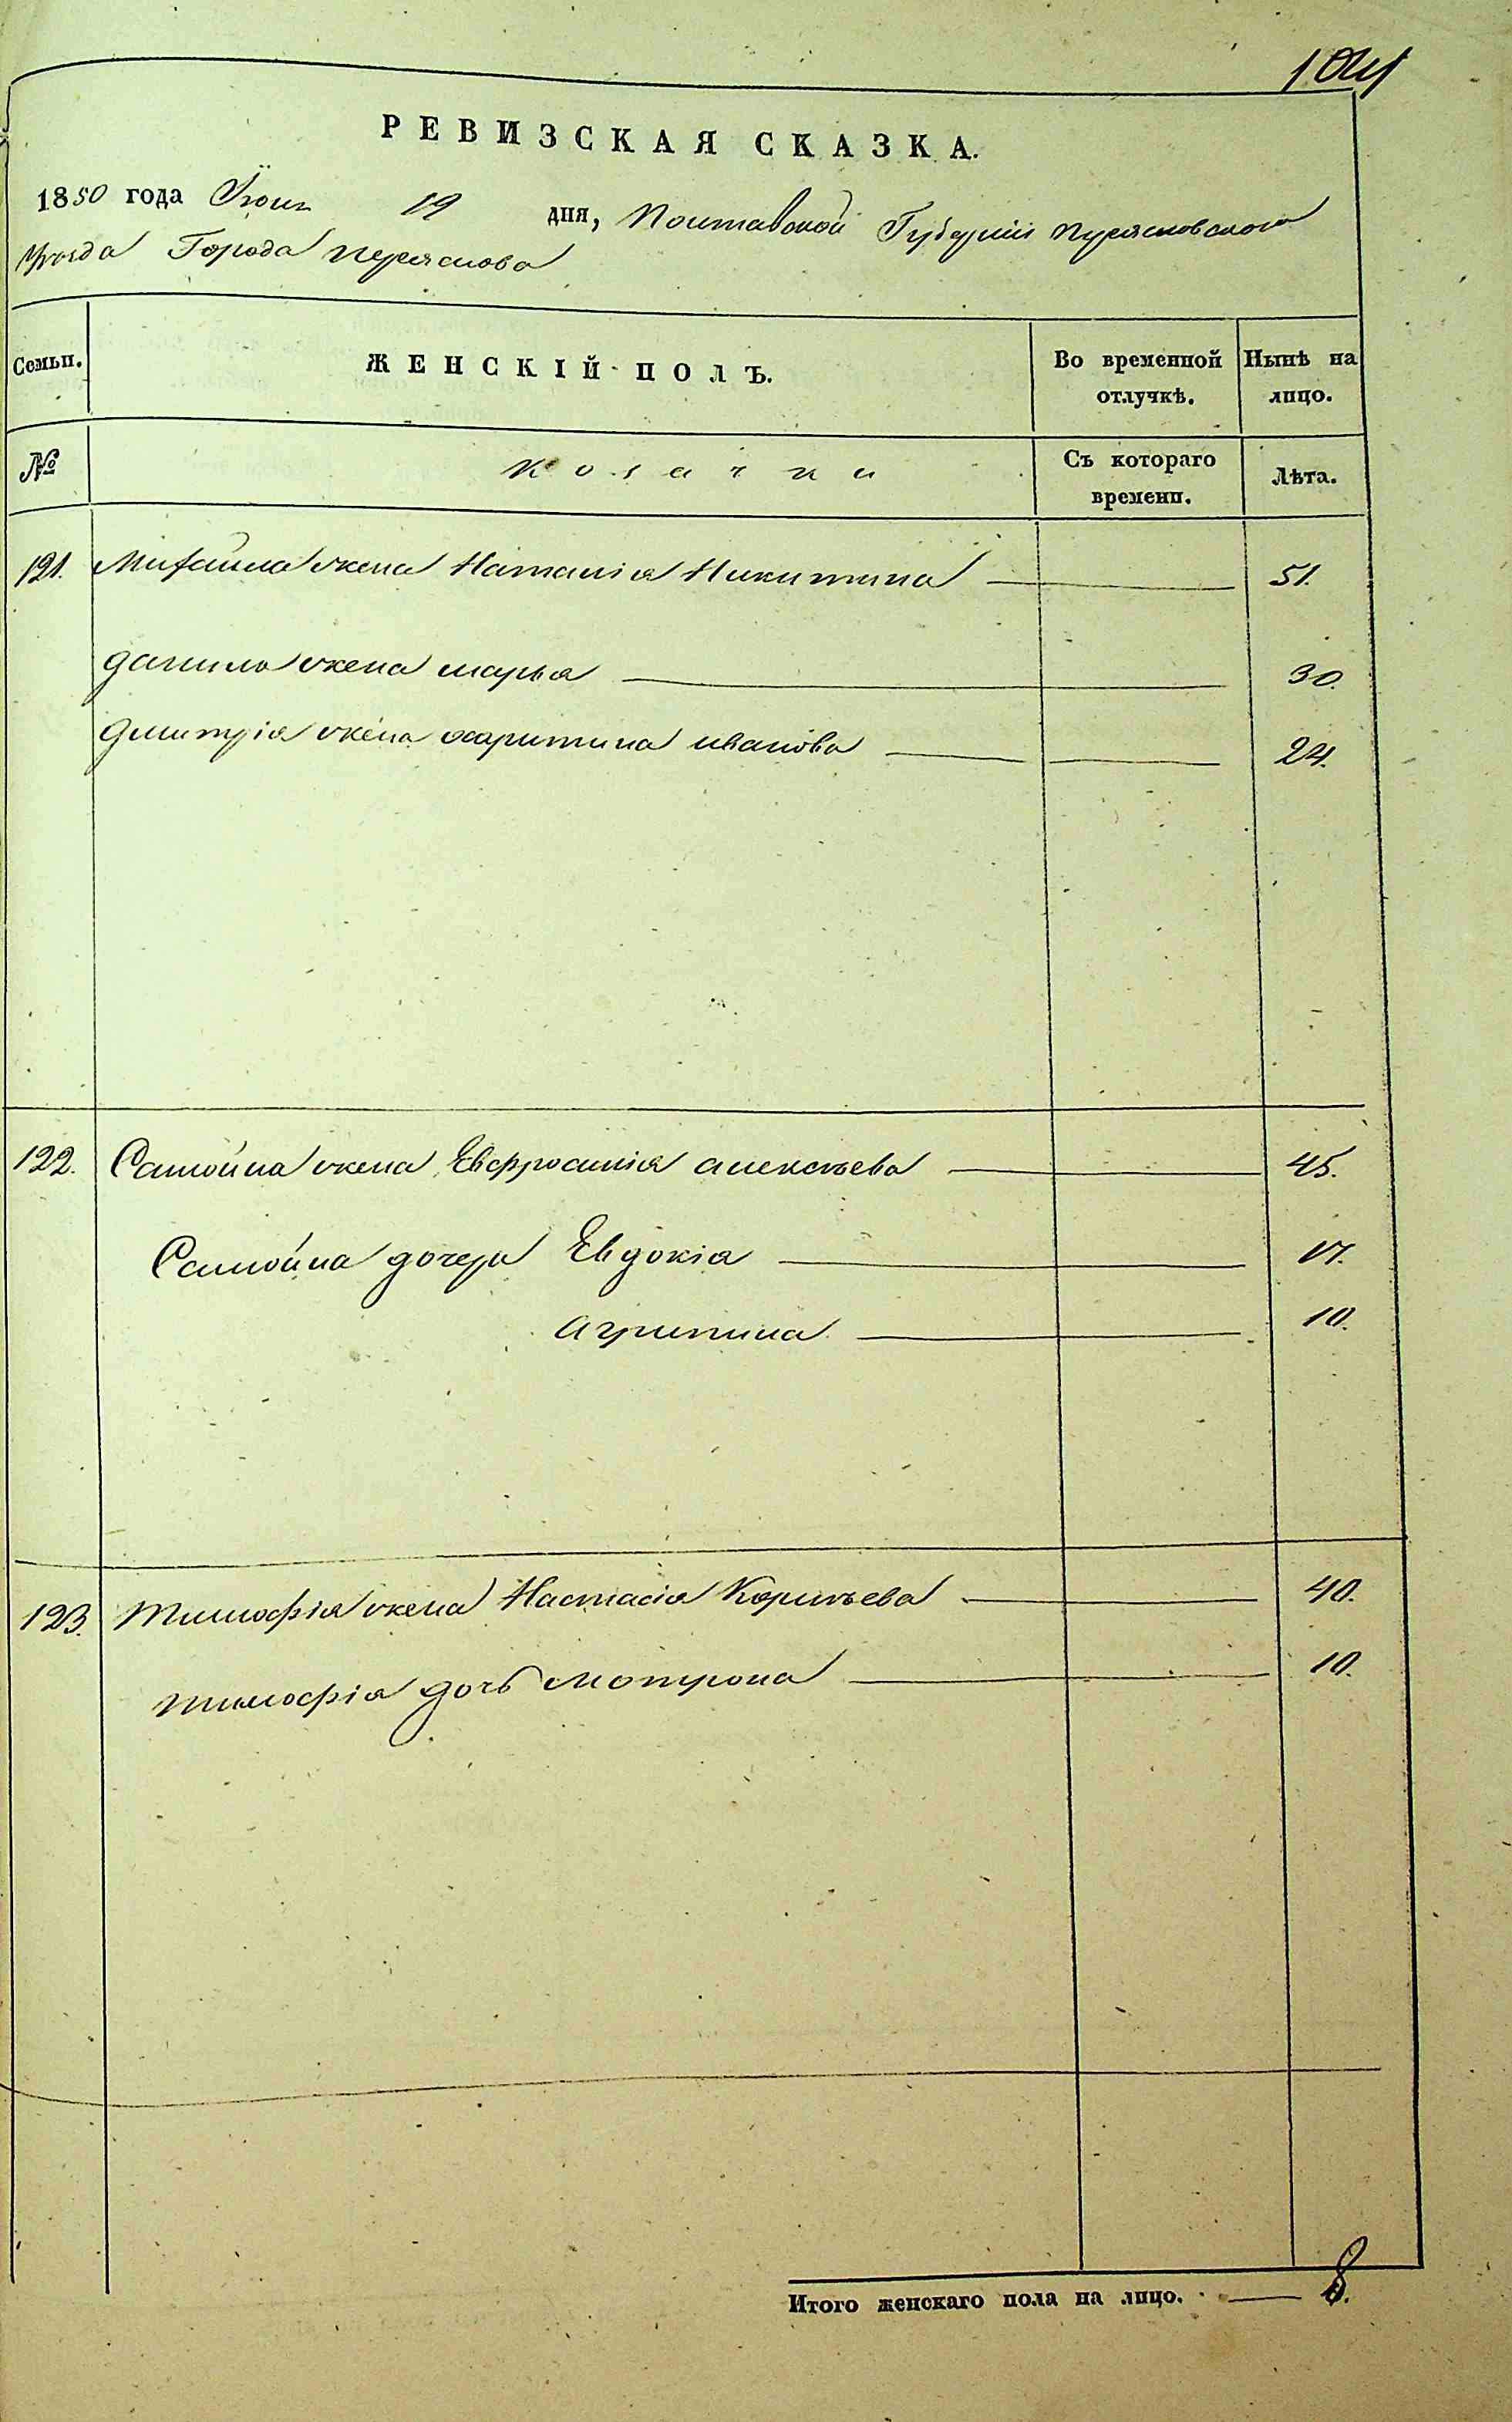 104
РЕВИЗСКАЯ СКАЗКА.
1850 года Іюня 19 дня, Полтавской Губерніи Переясловского
Уезда Города Переяслова
Семьи. ЖЕНСКІЙ ПОЛЪ. Во временной отлучкѣ. Нынѣ на лицо.
№ Козачки Съ котораго времени. Лѣта.
121. Михайла жена Наталія Никитина 51.
Данила жена марья 30.
Дмитрія жена харитина иванова 24.
122. Самойла жена Евфросинія алексѣева 45.
Самойла дочери Евдокія 17.
Агрипина 10.
123. Тимофія жена Настасія Корнѣева 40.
тимофія дочь Мотрона 10.
Итого женскаго пола на лицо. 8.